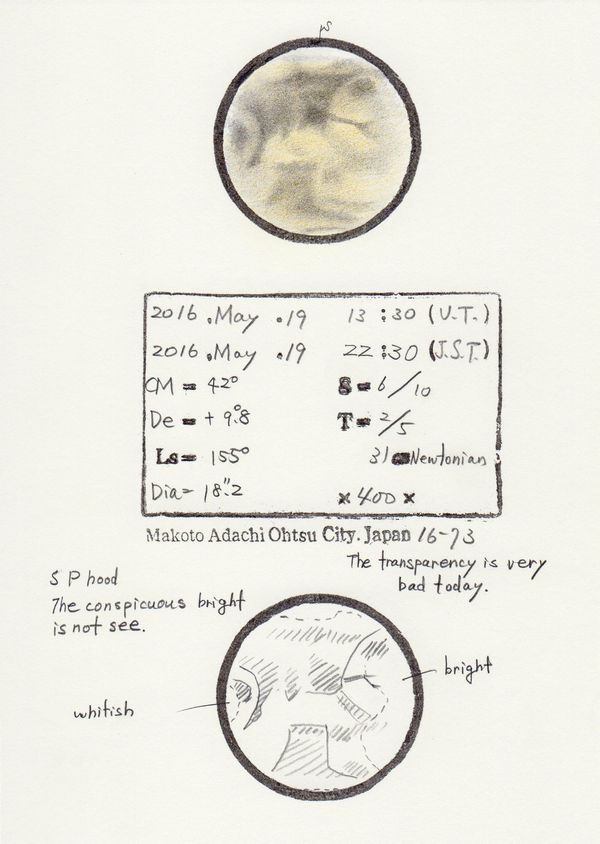 2016 . May . 19 13 : 30 (U.T.)
2016 . May . 19 22 : 30 (J.S.T.)
CM = 42° S = 6/10
De = + 9.°8 T = 2/5
Ls = 155° 31 Newtonian
Dia = 18."2 × 400 ×
Makoto Adachi Ohtsu City. Japan 16-73
The transparency is very
bad today.
S P hood
The conspicuous bright
is not see.
bright
whitish